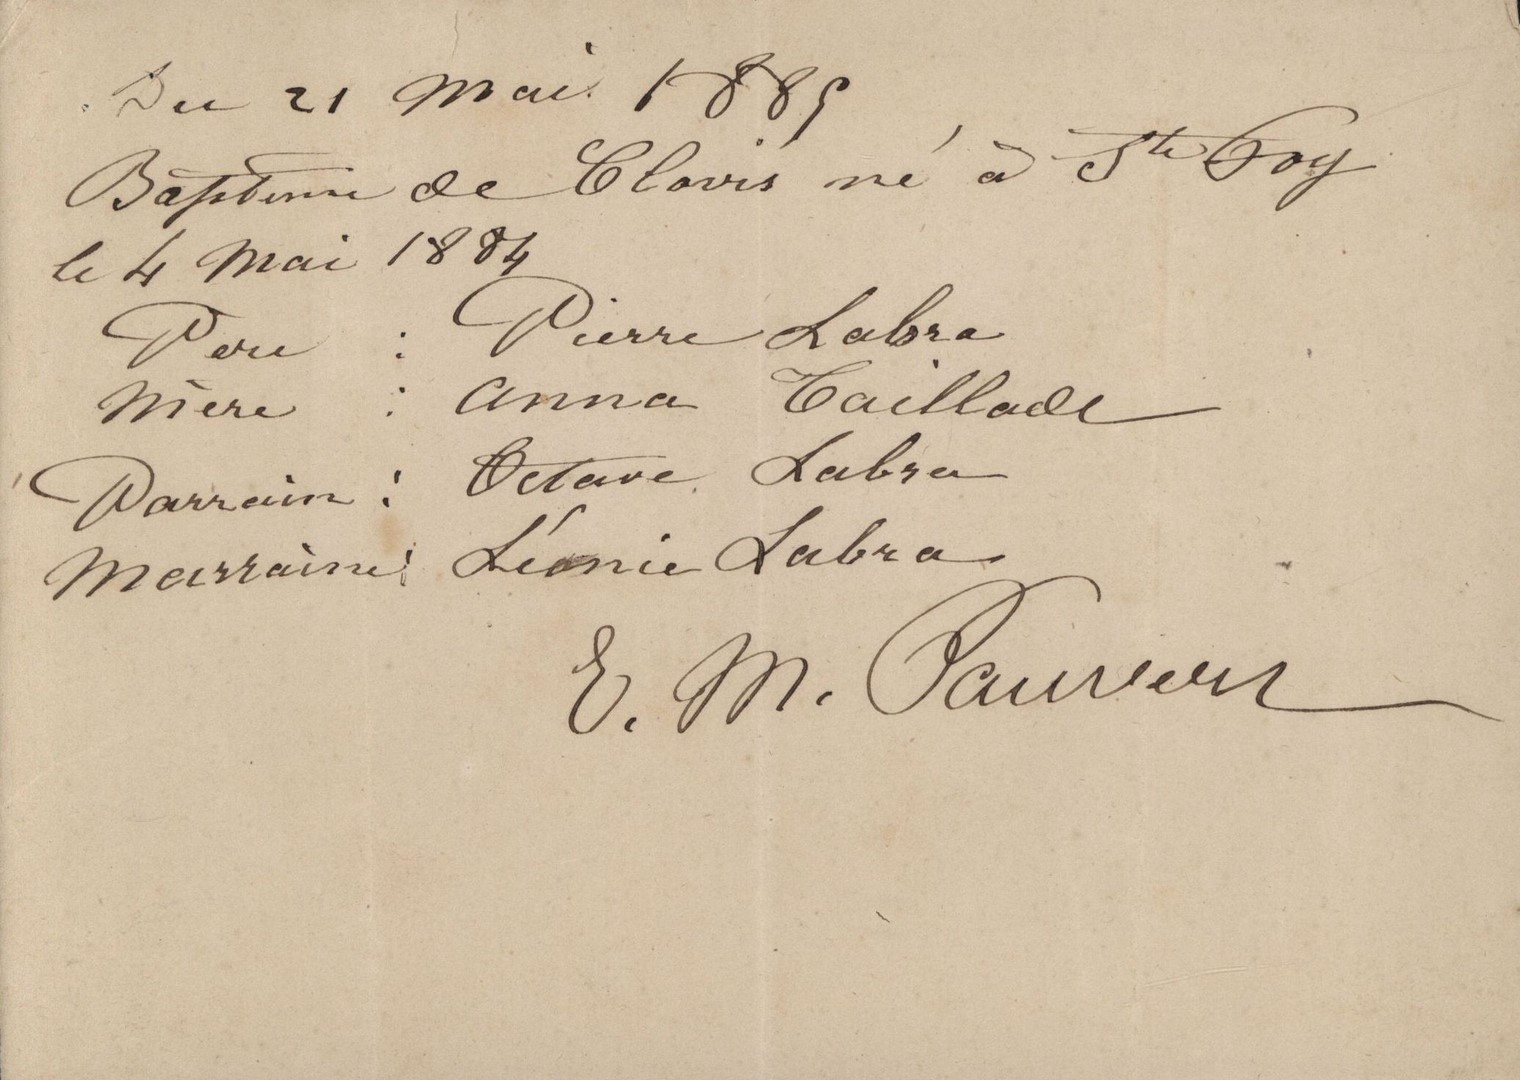 Du 21 Mai 1885
Baptême de Clovis né à Ste Foy
le 4 Mai 1884
Père : Pierre Labra
Mère : Anna Taillade
Parrain : Octave Labra
Marraine : Léonie Labra
E. M.